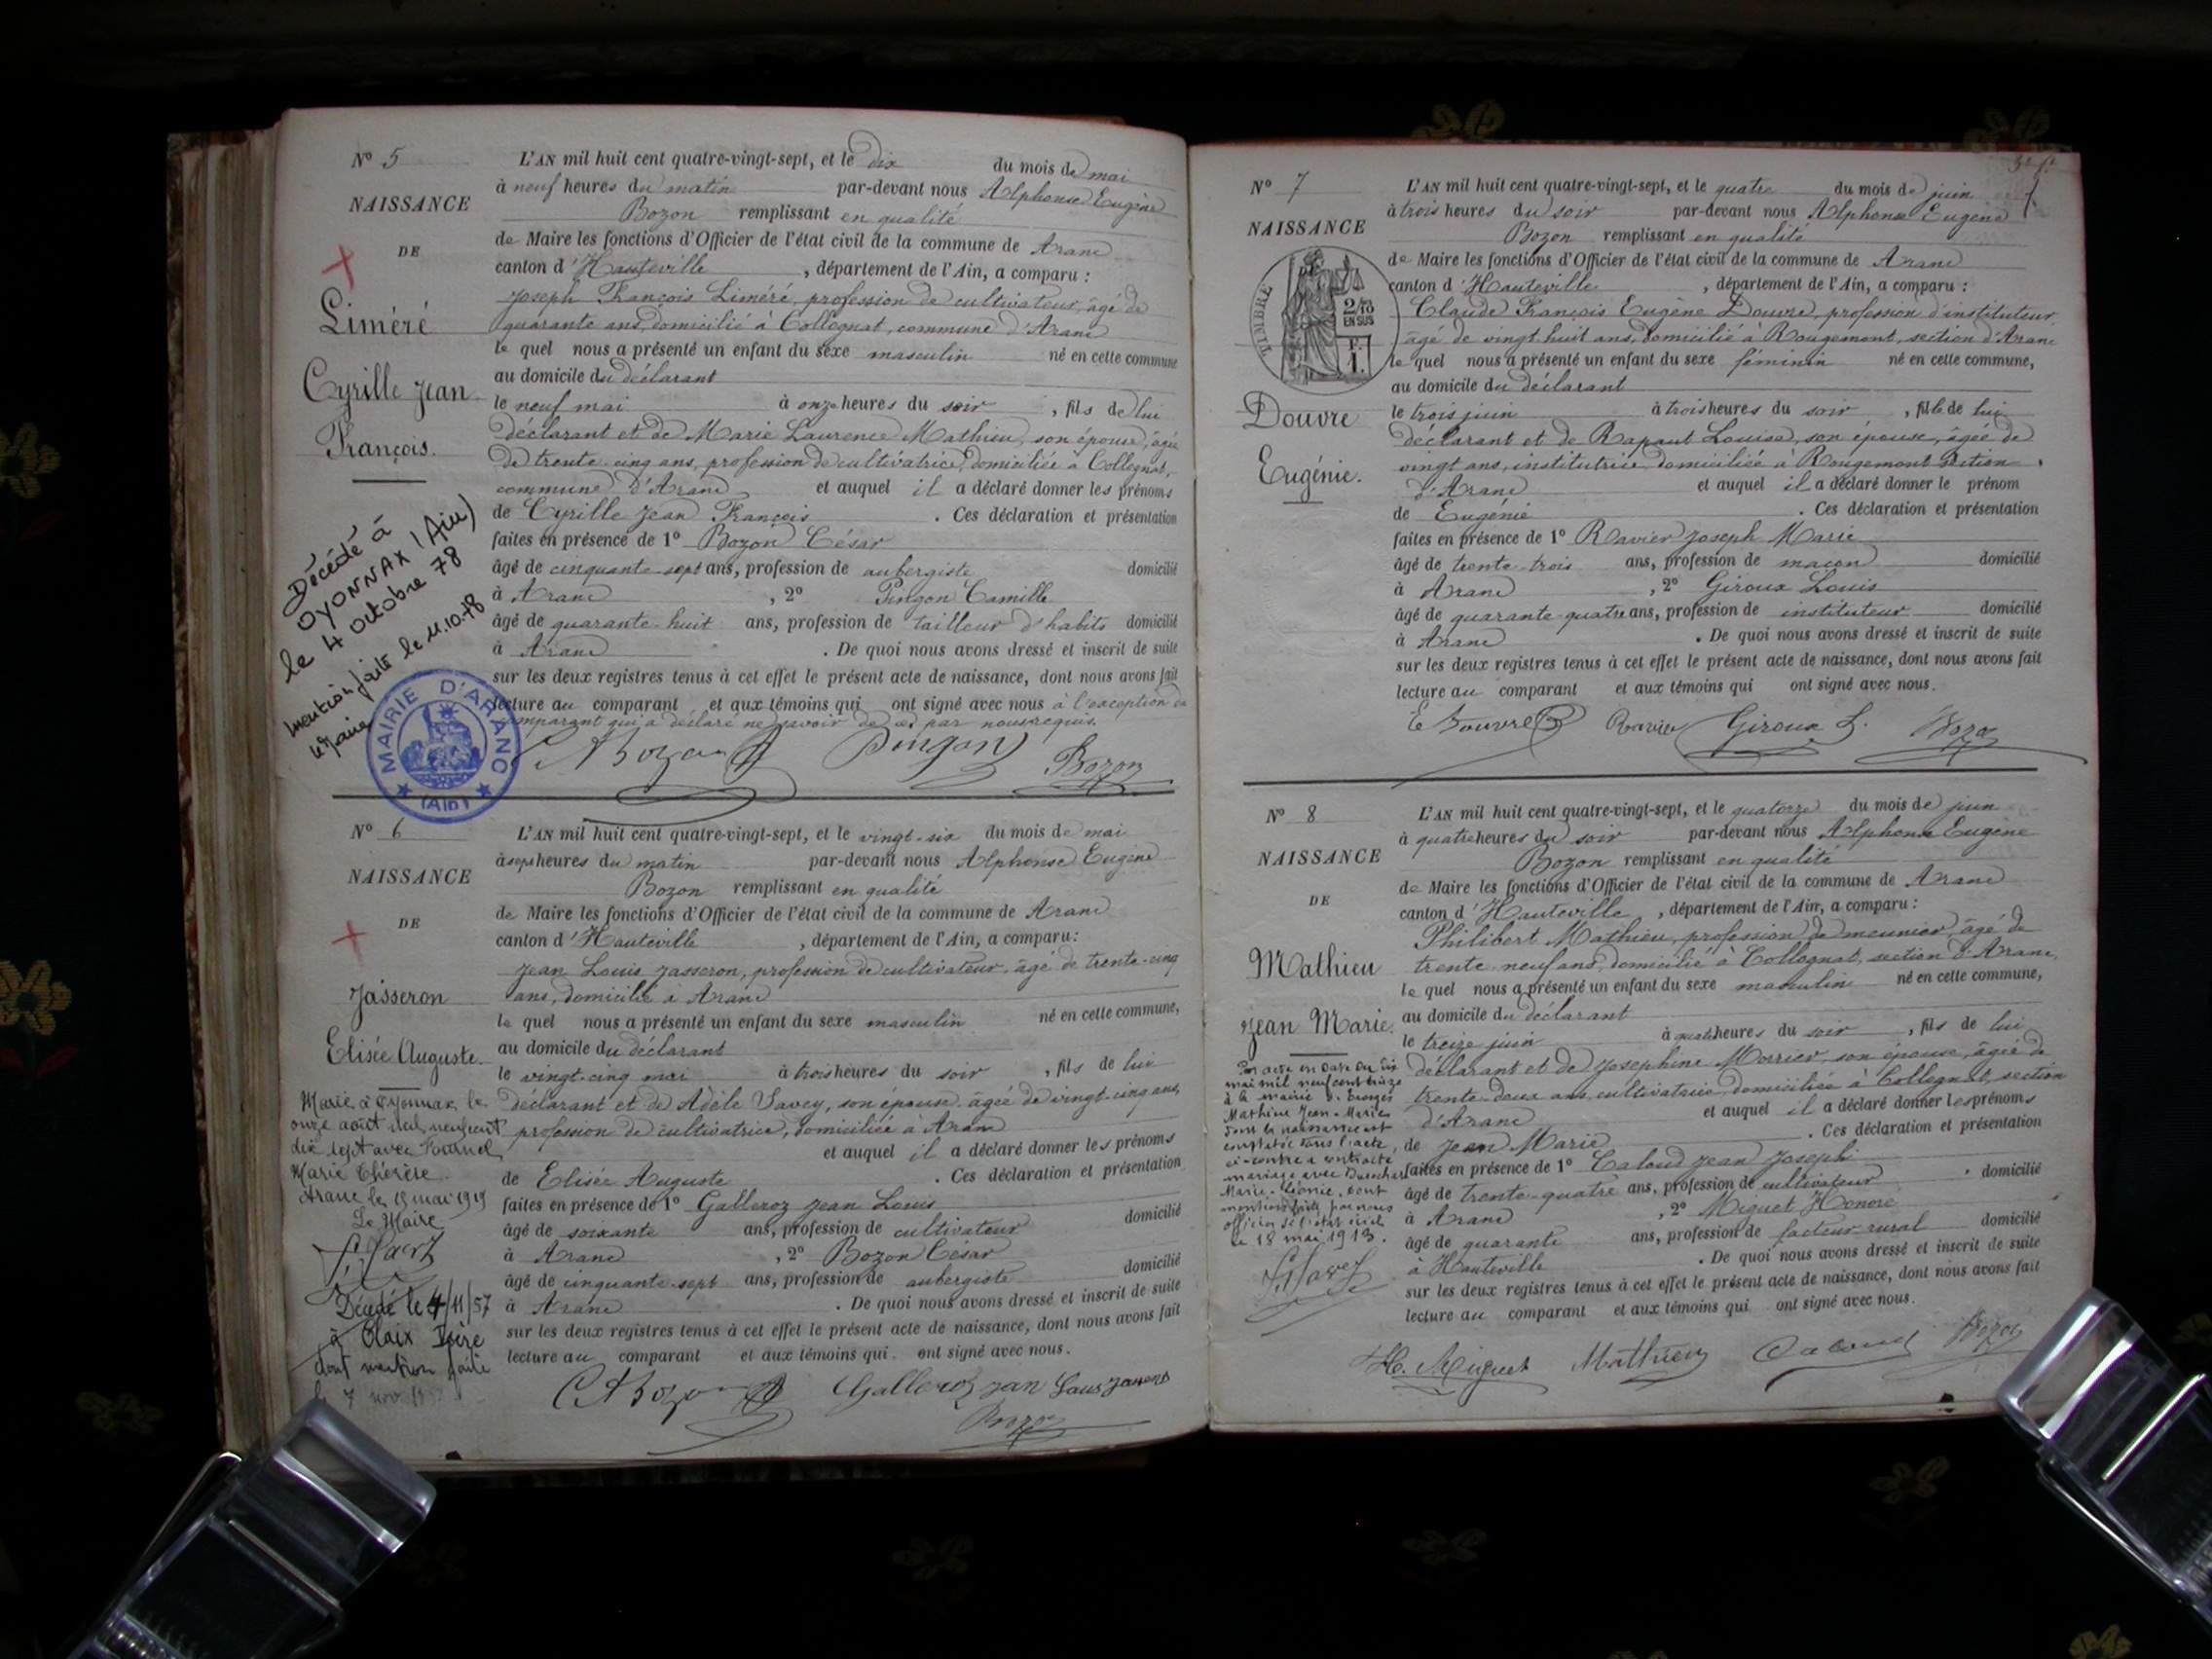 N° 5
NAISSANCE
DE
Liméré
Cyrille Jean
François.
Décédé à
OYONNAX (Ain)
le 4 octobre 78
mention faite le 11.10.78
le Maire
MAIRIE D'ARANC
(AIN)
L'AN mil huit cent quatre-vingt-sept, et le dix du mois de mai
à neuf heures du matin par-devant nous Alphonse Eugène
Bozon remplissant en qualité
de Maire les fonctions d'Officier de l'état civil de la commune de Aranc
canton d'Hauteville, département de l'Ain, a comparu :
Joseph François Liméré, profession de cultivateur, âgé de
quarante ans, domicilié à Collognat, commune d'Aranc
le quel nous a présenté un enfant du sexe masculin né en cette commune
au domicile du déclarant
le neuf mai à onze heures du soir, fils de lui
déclarant et de Marie Laurence Mathieu, son épouse, âgée
de trente-cinq ans, profession de cultivatrice, domiciliée à Collognat,
commune d'Aranc et auquel il a déclaré donner les prénoms
de Cyrille Jean François. Ces déclaration et présentation
faites en présence de 1° Bozon César
âgé de cinquante-sept ans, profession de aubergiste domicilié
à Aranc, 2° Pingon Camille
âgé de quarante-huit ans, profession de tailleur d'habits domicilié
à Aranc. De quoi nous avons dressé et inscrit de suite
sur les deux registres tenus à cet effet le présent acte de naissance, dont nous avons fait
lecture au comparant et aux témoins qui ont signé avec nous à l'exception du
comparant qui a déclaré ne savoir de ce par nous requis.
Bozon Pingon Bozon
N° 6
NAISSANCE
DE
Jasseron
Elisée Auguste.
Marié à Oyonnax le
onze août mil neuf cent
dix sept avec Fournel
Marie Thérèse.
Aranc le 19 mai 1919
Le Maire
Décédé le 4/11/57
à Claix Isère
dont mention faite
le 7 nov
L'AN mil huit cent quatre-vingt-sept, et le vingt-six du mois de mai
à sept heures du matin par-devant nous Alphonse Eugène
Bozon remplissant en qualité
de Maire les fonctions d'Officier de l'état civil de la commune de Aranc
canton d'Hauteville, département de l'Ain, a comparu :
Jean Louis Jasseron, profession de cultivateur, âgé de trente-cinq
ans, domicilié à Aranc
le quel nous a présenté un enfant du sexe masculin né en cette commune,
au domicile du déclarant
le vingt-cinq mai à trois heures du soir, fils de lui
déclarant et de Adèle Savey, son épouse, âgée de vingt-cinq ans,
profession de cultivatrice, domiciliée à Aranc
et auquel il a déclaré donner les prénoms
de Elisée Auguste. Ces déclaration et présentation
faites en présence de 1° Galleroz Jean Louis
âgé de soixante ans, profession de cultivateur domicilié
à Aranc, 2° Bozon César
âgé de cinquante-sept ans, profession de aubergiste domicilié
à Aranc. De quoi nous avons dressé et inscrit de suite
sur les deux registres tenus à cet effet le présent acte de naissance, dont nous avons fait
lecture au comparant et aux témoins qui ont signé avec nous.
Bozon Galleroz Jan Louis
Bozon
N° 7
NAISSANCE
TIMBRE
2/10
EN SUS
1.
Douvre
Eugénie.
L'AN mil huit cent quatre-vingt-sept, et le quatre du mois de juin
à trois heures du soir par-devant nous Alphonse Eugène
Bozon remplissant en qualité
de Maire les fonctions d'Officier de l'état civil de la commune de Aranc
canton d'Hauteville, département de l'Ain, a comparu :
Claude François Eugène Douvre, profession d'instituteur,
âgé de vingt huit ans, domicilié à Rougemont, section d'Aranc
le quel nous a présenté un enfant du sexe féminin né en cette commune,
au domicile du déclarant
le trois juin à trois heures du soir, fille de lui
déclarant et de Rapaut Louise, son épouse, âgée de
vingt ans, institutrice, domiciliée à Rougemont section
d'Aranc et auquel il a déclaré donner le prénom
de Eugénie. Ces déclaration et présentation
faites en présence de 1° Ravier Joseph Marie
âgé de trente-trois ans, profession de maçon domicilié
à Aranc, 2° Giroux Louis
âgé de quarante-quatre ans, profession de instituteur domicilié
à Aranc. De quoi nous avons dressé et inscrit de suite
sur les deux registres tenus à cet effet le présent acte de naissance, dont nous avons fait
lecture au comparant et aux témoins qui ont signé avec nous.
E Douvre Ravier Giroux L. Bozon
N° 8
NAISSANCE
DE
Mathieu
Jean Marie.
Par acte en date du dix
mai mil neuf cent treize
à la mairie d'
Mathieu Jean-Marie
dont la naissance est
constatée dans l'acte
ci-contre a contracté
mariage avec
Marie-Léonie, dont
mention faite par nous
officier de l'état civil
le 18 mai 1913.
L'AN mil huit cent quatre-vingt-sept, et le quatorze du mois de juin
à quatre heures du soir par-devant nous Alphonse Eugène
Bozon remplissant en qualité
de Maire les fonctions d'Officier de l'état civil de la commune de Aranc
canton d'Hauteville, département de l'Ain, a comparu :
Philibert Mathieu, profession de meunier, âgé de
trente-neuf ans, domicilié à Collognat, section d'Aranc,
le quel nous a présenté un enfant du sexe masculin né en cette commune,
au domicile du déclarant
le treize juin à quatre heures du soir, fils de lui
déclarant et de Josephine Morrier, son épouse, âgée de
trente-deux ans, cultivatrice, domiciliée à Collognat, section
d'Aranc et auquel il a déclaré donner les prénoms
de Jean Marie. Ces déclaration et présentation
faites en présence de 1° Caloud Jean Joseph
âgé de trente-quatre ans, profession de cultivateur domicilié
à Aranc, 2° Miguet Honoré
âgé de quarante ans, profession de facteur rural domicilié
à Hauteville. De quoi nous avons dressé et inscrit de suite
sur les deux registres tenus à cet effet le présent acte de naissance, dont nous avons fait
lecture au comparant et aux témoins qui ont signé avec nous.
H. Miguet Mathieu Caloud Bozon